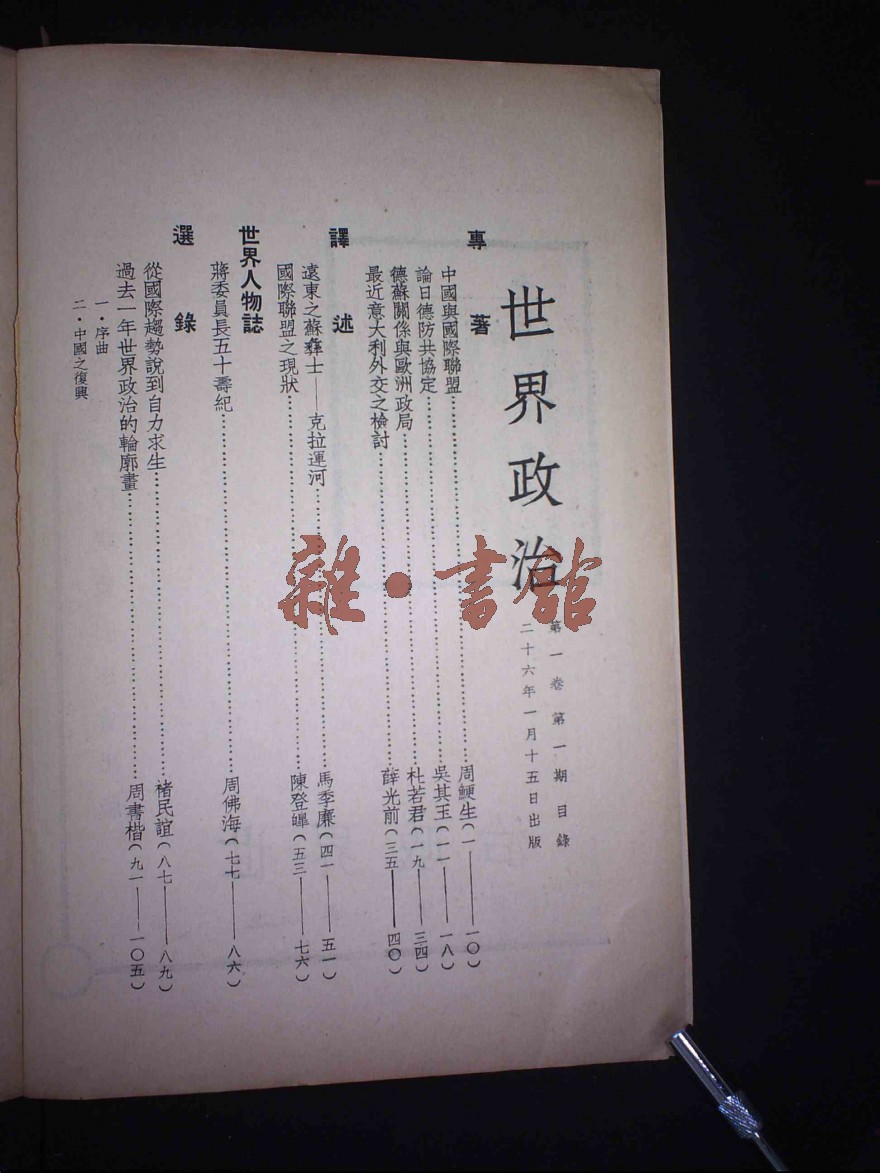 世界政治
第一卷第一期目錄
二十六年一月十五日出版
專著
中國與國際聯盟………周鯁生(一——一〇)
論日德防共協定………吳其玉(一一——一八)
德蘇關係與歐洲政局………杜若君(一九——三四)
最近意大利外交之檢討………薛光前(三五——四〇)
譯述
遠東之蘇彝士——克拉運河………馬季廉(四一——五一)
國際聯盟之現狀………陳登皞(五三——七六)
世界人物誌
蔣委員長五十壽紀………周佛海(七七——八六)
選錄
從國際趨勢說到自力求生………褚民誼(八七——八九)
過去一年世界政治的輪廓畫………周書楷(九一——一〇五)
一・序曲
二・中國之復興
雜・書館